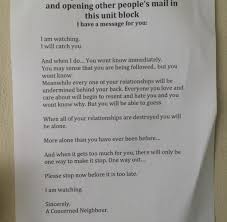 and opening other people's mail in
this unit block
I have a message for you:
I am watching.
I will catch you
And when I do... You wont know immediately.
You may sense that you are being followed, but you
wont know
Meanwhile every one of your relationships will be
undermined behind your back. Everyone you love and
care about will begin to resent and hate you and you
wont know why. But you will be able to guess.
When all of your relationships are destroyed you will
be alone.
More alone than you have ever been before...
And when it gets too much for you, there will only be
one way to make it stop. One way out...
Please stop now before it is too late.
I am watching.
Sincerely,
A Concerned Neighbour.